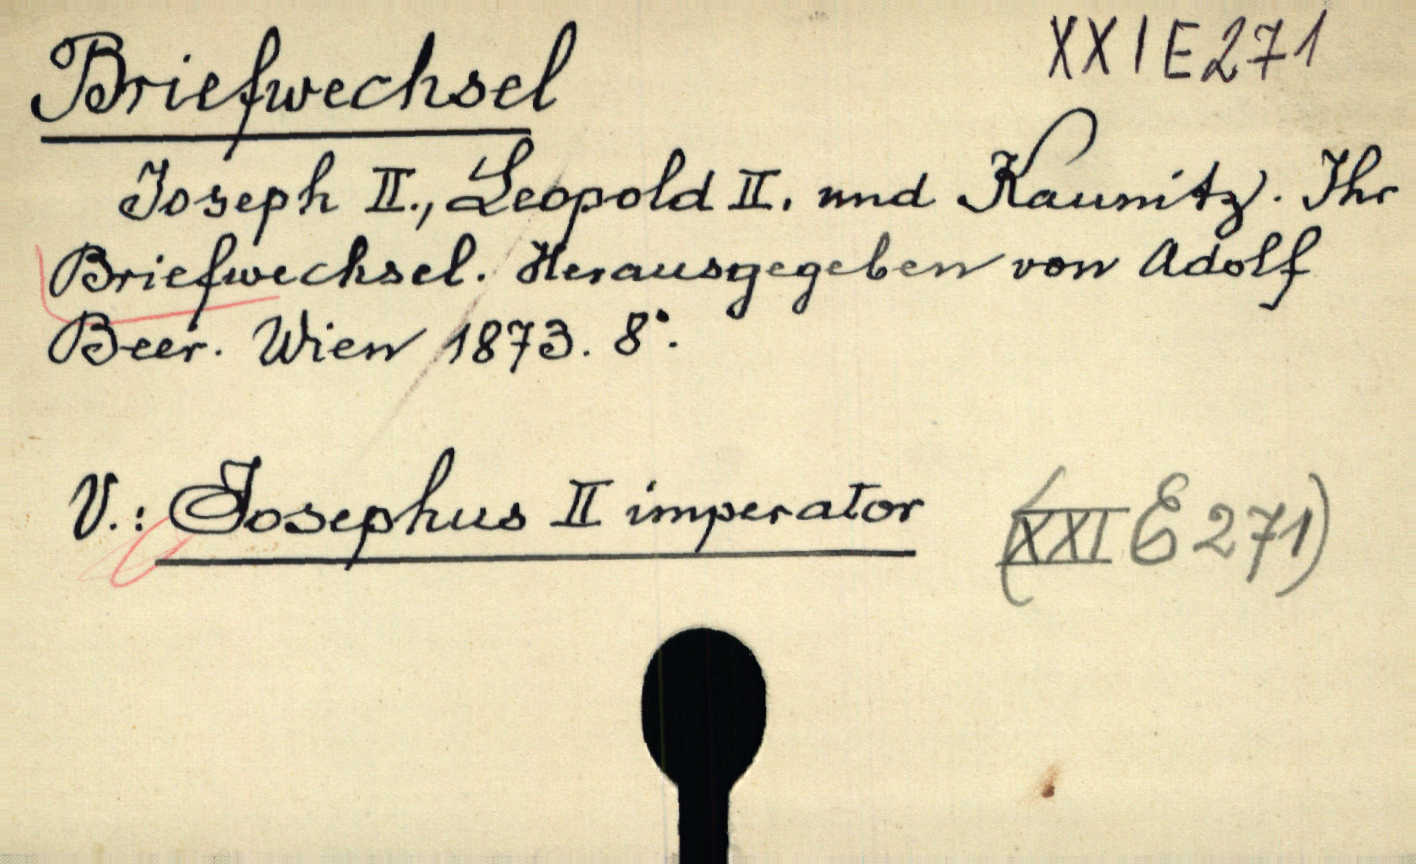 Briefwechsel XXI E 271
Joseph II., Leopold II. und Kaunitz. Ihr
Briefwechsel. Herausgegeben von Adolf
Beer. Wien 1873. 8°.
V.: Josephus II imperator (XXI E 271)